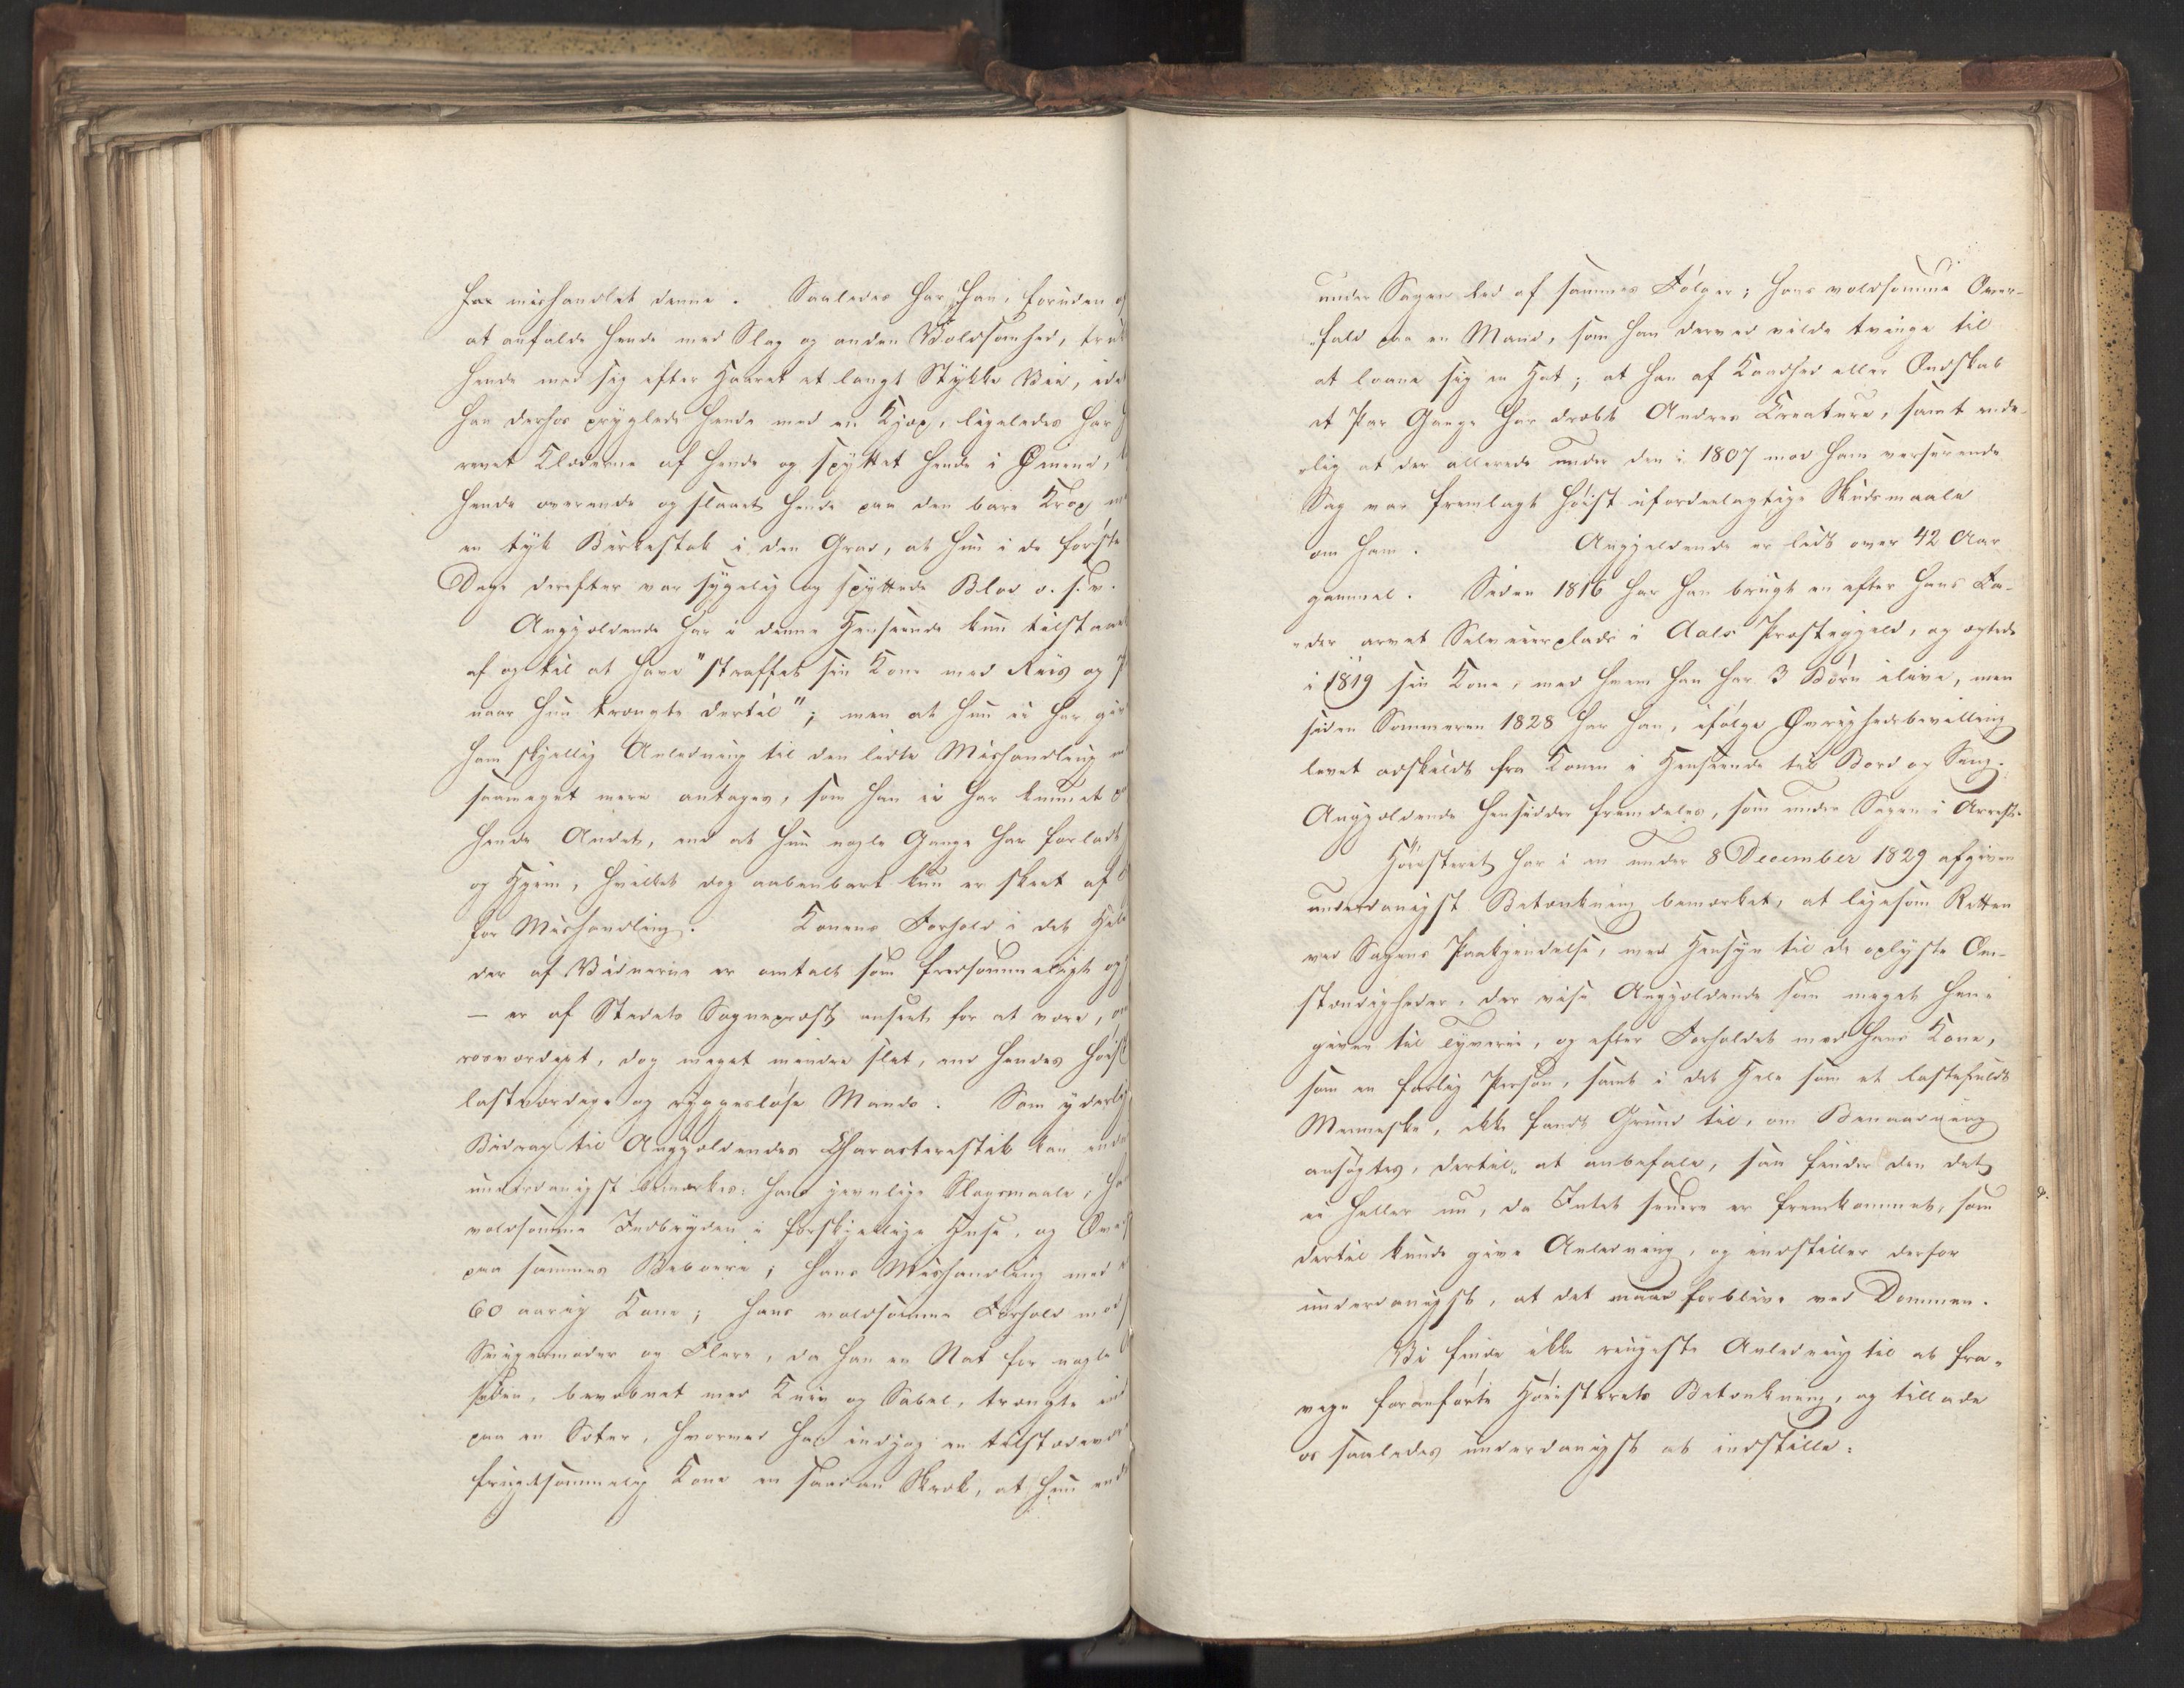 har mishandlet denne. Saaledes har han, foruden
at anfalde hende med Slag og anden Voldsomhed,
hende med sig efter Haaret et langt Stykke Vei,
han derhos pryglede hende med en Kjæp, ligeledes har
revet Klæderne af hende og spyttet hende i Øinene,
hende overende og slaaet hende paa den bare Krop
en tyk Birkestok i den Grad, at hun i de første
Dage derefter var sygelig og spyttede Blod o. s. v.
Angjældende har i denne Henseende kun tilstaaet
af og til at have "straffet sin Kone med Riis og
naar hun trængte dertil"; men at hun ei har
ham skjellig Anledning til den lidte Mishandling
saameget mere antages, som han ei har kunnet
hende Andet, end at hun nogle Gange har forladt
og Hjem, hvilket dog aabenbart kun er skeet af
for Mishandling. Konens Forhold i det Hele
der af Vidnerne er omtalt som fredsommeligt og
– er af Stedets Sognepræst anseet for at være,
roesværdigt, dog meget mindre slet, end hendes høist
lastværdige og ryggesløse Mands. Som yderlig
Bidrag til Angjældendes Charakteristik kan
underdanigst bemærkes: hans jevnlige Slagsmaale,
voldsomme Indbryden i forskjellige Huse, og
paa sammes Beboere; hans Mishandling mod
60 aarig Kone; hans voldsomme Forhold mod
Svigermoder og Flere, da han en Nat for nogle
siden, bevæbnet med Kniv og Sabel, trængte ind
paa en Sæter, hvorved han indjog en tilstædeværende
frugtsommelig Kone en saadan Skræk, at hun
under Sagen led af sammes Følger; hans voldsomme Over-
fald paa en Mand, som han derved vilde tvinge til
at laane sig en Hat; at han af Kaadhed eller Ondskab
et Par Gange har dræbt Andres Creature, samt ende-
lig at der allerede under den i 1807 mod ham verserende
Sag var fremlagt høist ufordeelagtige Skudsmaale
om ham. Angjeldende er lidt over 42 Aar
gammel. Siden 1816 har han brugt en efter hans Fa-
der arvet Selveierplads i Aals Præstegjeld, og ægtede
i 1819 sin Kone, med hvem han har 3 Børn ilive, men
siden Sommeren 1828 har han, ifølge Øvrighedsbevilling
levet adskildt fra Konen i Henseende til Bord og Seng.
Angjældende hensidder fremdeles, som under Sagen i Arrest.
Høiesteret har i en under 8 December 1829 afgiven
underdanigst Betænkning bemærket, at ligesom Retten
ved Sagens Paakjendelse, med Hensyn til de oplyste Om-
stændigheder, der vise Angjældende som meget hen-
given til Tyverie, og efter Forholdet mod hans Kone,
som en farlig Person, samt i det Hele som et lastefuldt
Menneske, ikke fandt Grund til, om Benaadning
ansøgtes, dertil at anbefale, saa finder den det
ei heller nu, da Intet senere er fremkommet, som
dertil kunde give Anledning, og indstiller derfor
underdanigst, at det maae forblive ved Dommen.
Vi finde ikke ringeste Anledning til at fra-
vige foranførte Høiesterets Betænkning, og tillade
os saaledes underdanigst at indstille: